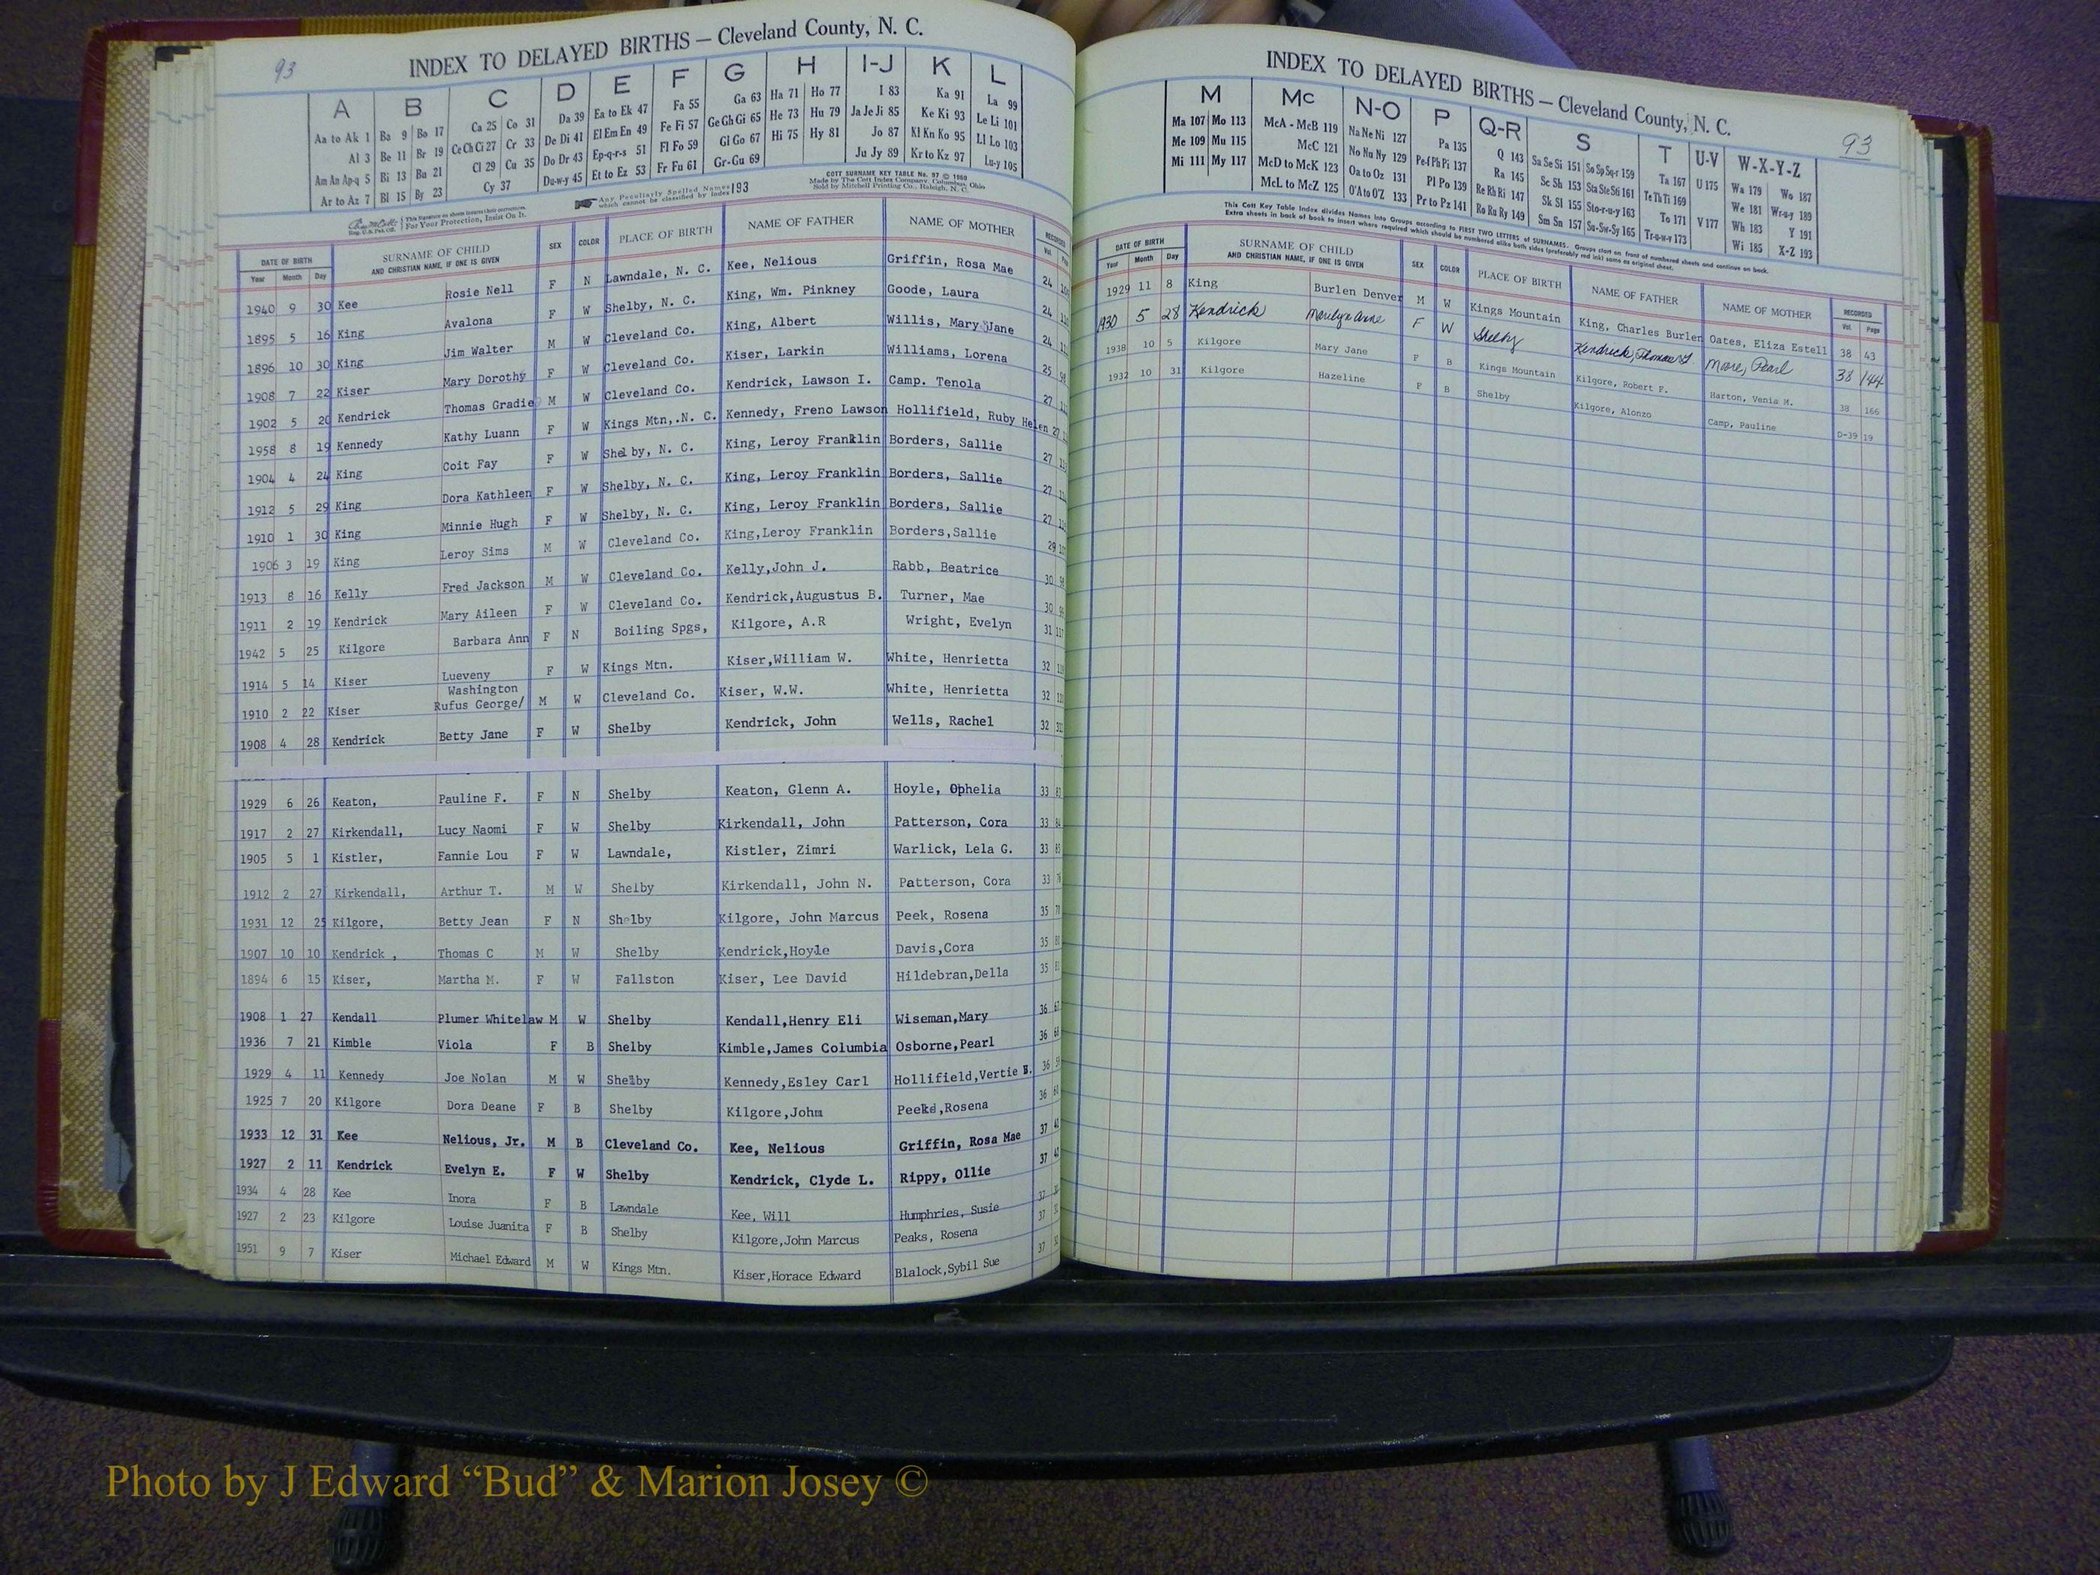 93
INDEX TO DELAYED BIRTHS — Cleveland County, N. C.
A B C D E F G H I-J K L
Aa to Ak 1 Ba 9 Bo 17 Ca 25 Co 31 Da 39 Ea to Ek 47 Fa 55 Ga 63 Ha 71 Ho 77 I 83 Ka 91 La 99
Al 3 Be 11 Br 19 Ce Ch Ci 27 Cr 33 De Di 41 El Em En 49 Fe Fi 57 Ge Gh Gi 65 He 73 Hu 79 Ja Je Ji 85 Ke Ki 93 Le Li 101
Am An Ap-q 5 Bi 13 Bu 21 Cl 29 Cu 35 Do Dr 43 Ep-q-r-s 51 Fl Fo 59 Gl Go 67 Hi 75 Hy 81 Jo 87 Kl Kn Ko 95 Ll Lo 103
Ar to Az 7 Bl 15 By 23 Cy 37 Du-w-y 45 Et to Ez 53 Fr Fu 61 Gr-Gu 69 Ju Jy 89 Kr to Kz 97 Lu-y 105
This Signature on sheets insures their correctness. For Your Protection, Insist On It.
Any Peculiarly Spelled Names which cannot be classified by index 193
COTT SURNAME KEY TABLE No. 97 © 1960
Made by The Cott Index Company, Columbus, Ohio
Sold by Mitchell Printing Co., Raleigh, N. C.
DATE OF BIRTH SURNAME OF CHILD AND CHRISTIAN NAME, IF ONE IS GIVEN SEX COLOR PLACE OF BIRTH NAME OF FATHER NAME OF MOTHER RECORDED
Year Month Day Vol.
1940 9 30 Kee Rosie Nell F N Lawndale, N. C. Kee, Nelious Griffin, Rosa Mae 24
1895 5 16 King Avalona F W Shelby, N. C. King, Wm. Pinkney Goode, Laura 24
1896 10 30 King Jim Walter M W Cleveland Co. King, Albert Willis, Mary Jane 24
1908 7 22 Kiser Mary Dorothy F W Cleveland Co. Kiser, Larkin Williams, Lorena 25
1902 5 20 Kendrick Thomas Gradie M W Cleveland Co. Kendrick, Lawson I. Camp. Tenola 27
1958 8 19 Kennedy Kathy Luann F W Kings Mtn,.N. C. Kennedy, Freno Lawson Hollifield, Ruby Helen 27
1904 4 24 King Coit Fay F W Shelby, N. C. King, Leroy Franklin Borders, Sallie 27
1912 5 29 King Dora Kathleen F W Shelby, N. C. King, Leroy Franklin Borders, Sallie 27
1910 1 30 King Minnie Hugh F W Shelby, N. C. King, Leroy Franklin Borders, Sallie 27
1906 3 19 King Leroy Sims M W Cleveland Co. King,Leroy Franklin Borders,Sallie 29
1913 8 16 Kelly Fred Jackson M W Cleveland Co. Kelly,John J. Rabb, Beatrice 30
1911 2 19 Kendrick Mary Aileen F W Cleveland Co. Kendrick,Augustus B. Turner, Mae 30
1942 5 25 Kilgore Barbara Ann F N Boiling Spgs, Kilgore, A.R Wright, Evelyn 31
1914 5 14 Kiser Lueveny F W Kings Mtn. Kiser,William W. White, Henrietta 32
1910 2 22 Kiser Washington Rufus George/ M W Cleveland Co. Kiser, W.W. White, Henrietta 32
1908 4 28 Kendrick Betty Jane F W Shelby Kendrick, John Wells, Rachel 32
1929 6 26 Keaton, Pauline F. F N Shelby Keaton, Glenn A. Hoyle, Ophelia 33
1917 2 27 Kirkendall, Lucy Naomi F W Shelby Kirkendall, John Patterson, Cora 33
1905 5 1 Kistler, Fannie Lou F W Lawndale, Kistler, Zimri Warlick, Lela G. 33
1912 2 27 Kirkendall, Arthur T. M W Shelby Kirkendall, John N. Patterson, Cora 33
1931 12 25 Kilgore, Betty Jean F N Shelby Kilgore, John Marcus Peek, Rosena 35
1907 10 10 Kendrick , Thomas C M W Shelby Kendrick,Hoyle Davis,Cora 35
1894 6 15 Kiser, Martha M. F W Fallston Kiser, Lee David Hildebran,Della 35
1908 1 27 Kendall Plumer Whitelaw M W Shelby Kendall,Henry Eli Wiseman,Mary 36
1936 7 21 Kimble Viola F B Shelby Kimble,James Columbia Osborne,Pearl 36
1929 4 11 Kennedy Joe Nolan M W Shelby Kennedy,Esley Carl Hollifield,Vertie 36
1925 7 20 Kilgore Dora Deane F B Shelby Kilgore,John Rosena 36
1933 12 31 Kee Nelious, Jr. M B Cleveland Co. Kee, Nelious Griffin, Rosa Mae 37
1927 2 11 Kendrick Evelyn E. F W Shelby Kendrick, Clyde L. Rippy, Ollie 37
1934 4 28 Kee Inora F B Lawndale Kee, Will Humphries, Susie 37
1927 2 23 Kilgore Louise Juanita F B Shelby Kilgore,John Marcus Peaks, Rosena 37
1951 9 7 Kiser Michael Edward M W Kings Mtn. Kiser,Horace Edward Blalock,Sybil Sue 37
INDEX TO DELAYED BIRTHS — Cleveland County, N. C.
93
M Mc N-O P Q-R S T U-V W-X-Y-Z
Ma 107 Mo 113 McA - McB 119 Na Ne Ni 127 Pa 135 Q 143 Sa Se Si 151 So Sp Sq-r 159 Ta 167 U 175 Wa 179 Wo 187
Me 109 Mu 115 McC 121 No Nu Ny 129 Pe-f Ph Pi 137 Ra 145 Sc Sh 153 Sta Ste Sti 161 Te Th Ti 169 We 181 Wr-u-y 189
Mi 111 My 117 McD to McK 123 Oa to Oz 131 Pl Po 139 Re Rh Ri 147 Sk Sl 155 Sto-r-u-y 163 To 171 V 177 Wh 183 Y 191
McL to McZ 125 O'A to O'Z 133 Pr to Pz 141 Ro Ru Ry 149 Sm Sn 157 Su-Sw-Sy 165 Tr-u-w-y 173 Wi 185 X-Z 193
This Cott Key Table Index divides Names into Groups according to FIRST TWO LETTERS of SURNAMES. Groups start on front of numbered sheets and continue on back.
Extra sheets in back of book to insert where required which should be numbered alike both sides (preferably red ink) same as original sheet.
DATE OF BIRTH SURNAME OF CHILD AND CHRISTIAN NAME, IF ONE IS GIVEN SEX COLOR PLACE OF BIRTH NAME OF FATHER NAME OF MOTHER RECORDED
Year Month Day Vol. Page
1929 11 8 King Burlen Denver M W Kings Mountain King, Charles Burlen Oates, Eliza Estell 38 43
1930 5 28 Kendrick Marilyn Anne F W Shelby Kendrick, Thomas Moore, Pearl 38 144
1938 10 5 Kilgore Mary Jane F B Kings Mountain Kilgore, Robert F. Harton, Venia M. 38 166
1932 10 31 Kilgore Hazeline F B Shelby Kilgore, Alonzo Camp, Pauline D-39 19
Photo by J Edward “Bud” & Marion Josey ©